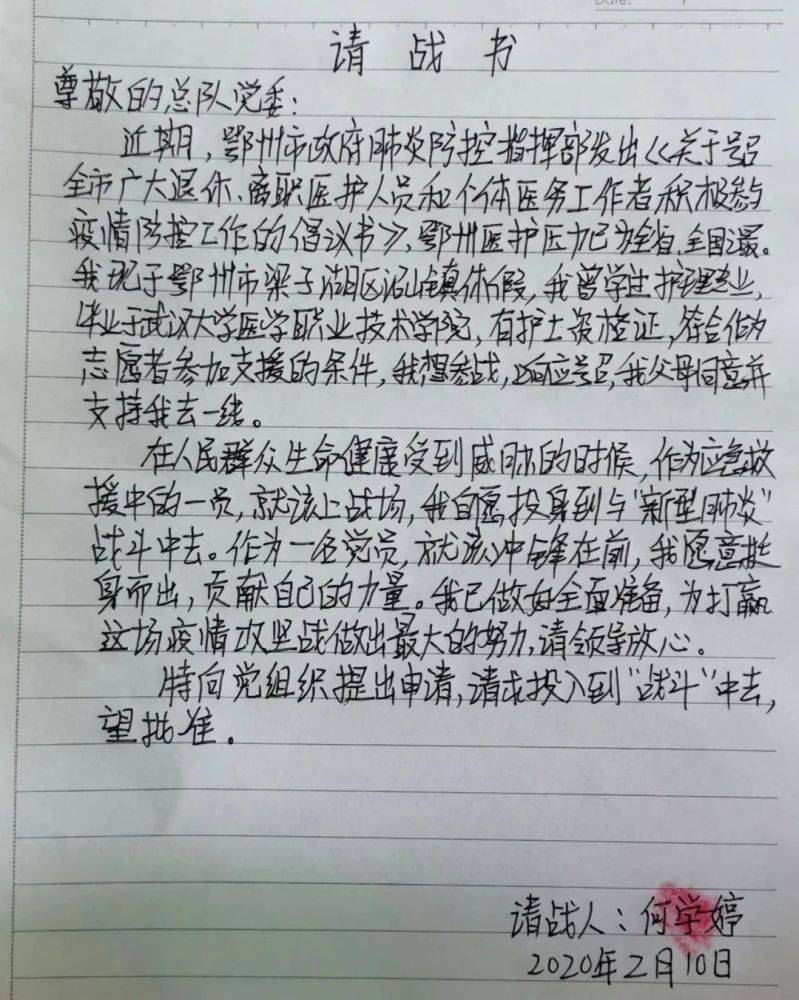 Date:
请战书
尊敬的总队党委：
近期，鄂州市政府肺炎防控指挥部发出《关于号召
全市广大退休、离职医护人员和个体医务工作者积极参与
疫情防控工作的倡议书》，鄂州医护压力已为全省、全国之最。
我现于鄂州市梁子湖区沼山镇休假，我曾学过护理专业，
毕业于武汉大学医学职业技术学院，有护士资格证，符合作为
志愿者参加支援的条件，我想参战，响应号召，我父母同意并
支持我去一线。
在人民群众生命健康受到威胁的时候，作为应急救
援中的一员，就该上战场，我自愿投身到与“新型肺炎”
战斗中去。作为一名党员，就该冲锋在前，我愿意挺
身而出，贡献自己的力量。我已做好全面准备，为打赢
这场疫情攻坚战做出最大的努力，请领导放心。
特向党组织提出申请，请求投入到“战斗”中去，
望批准。
请战人：何学婷
2020年2月10日